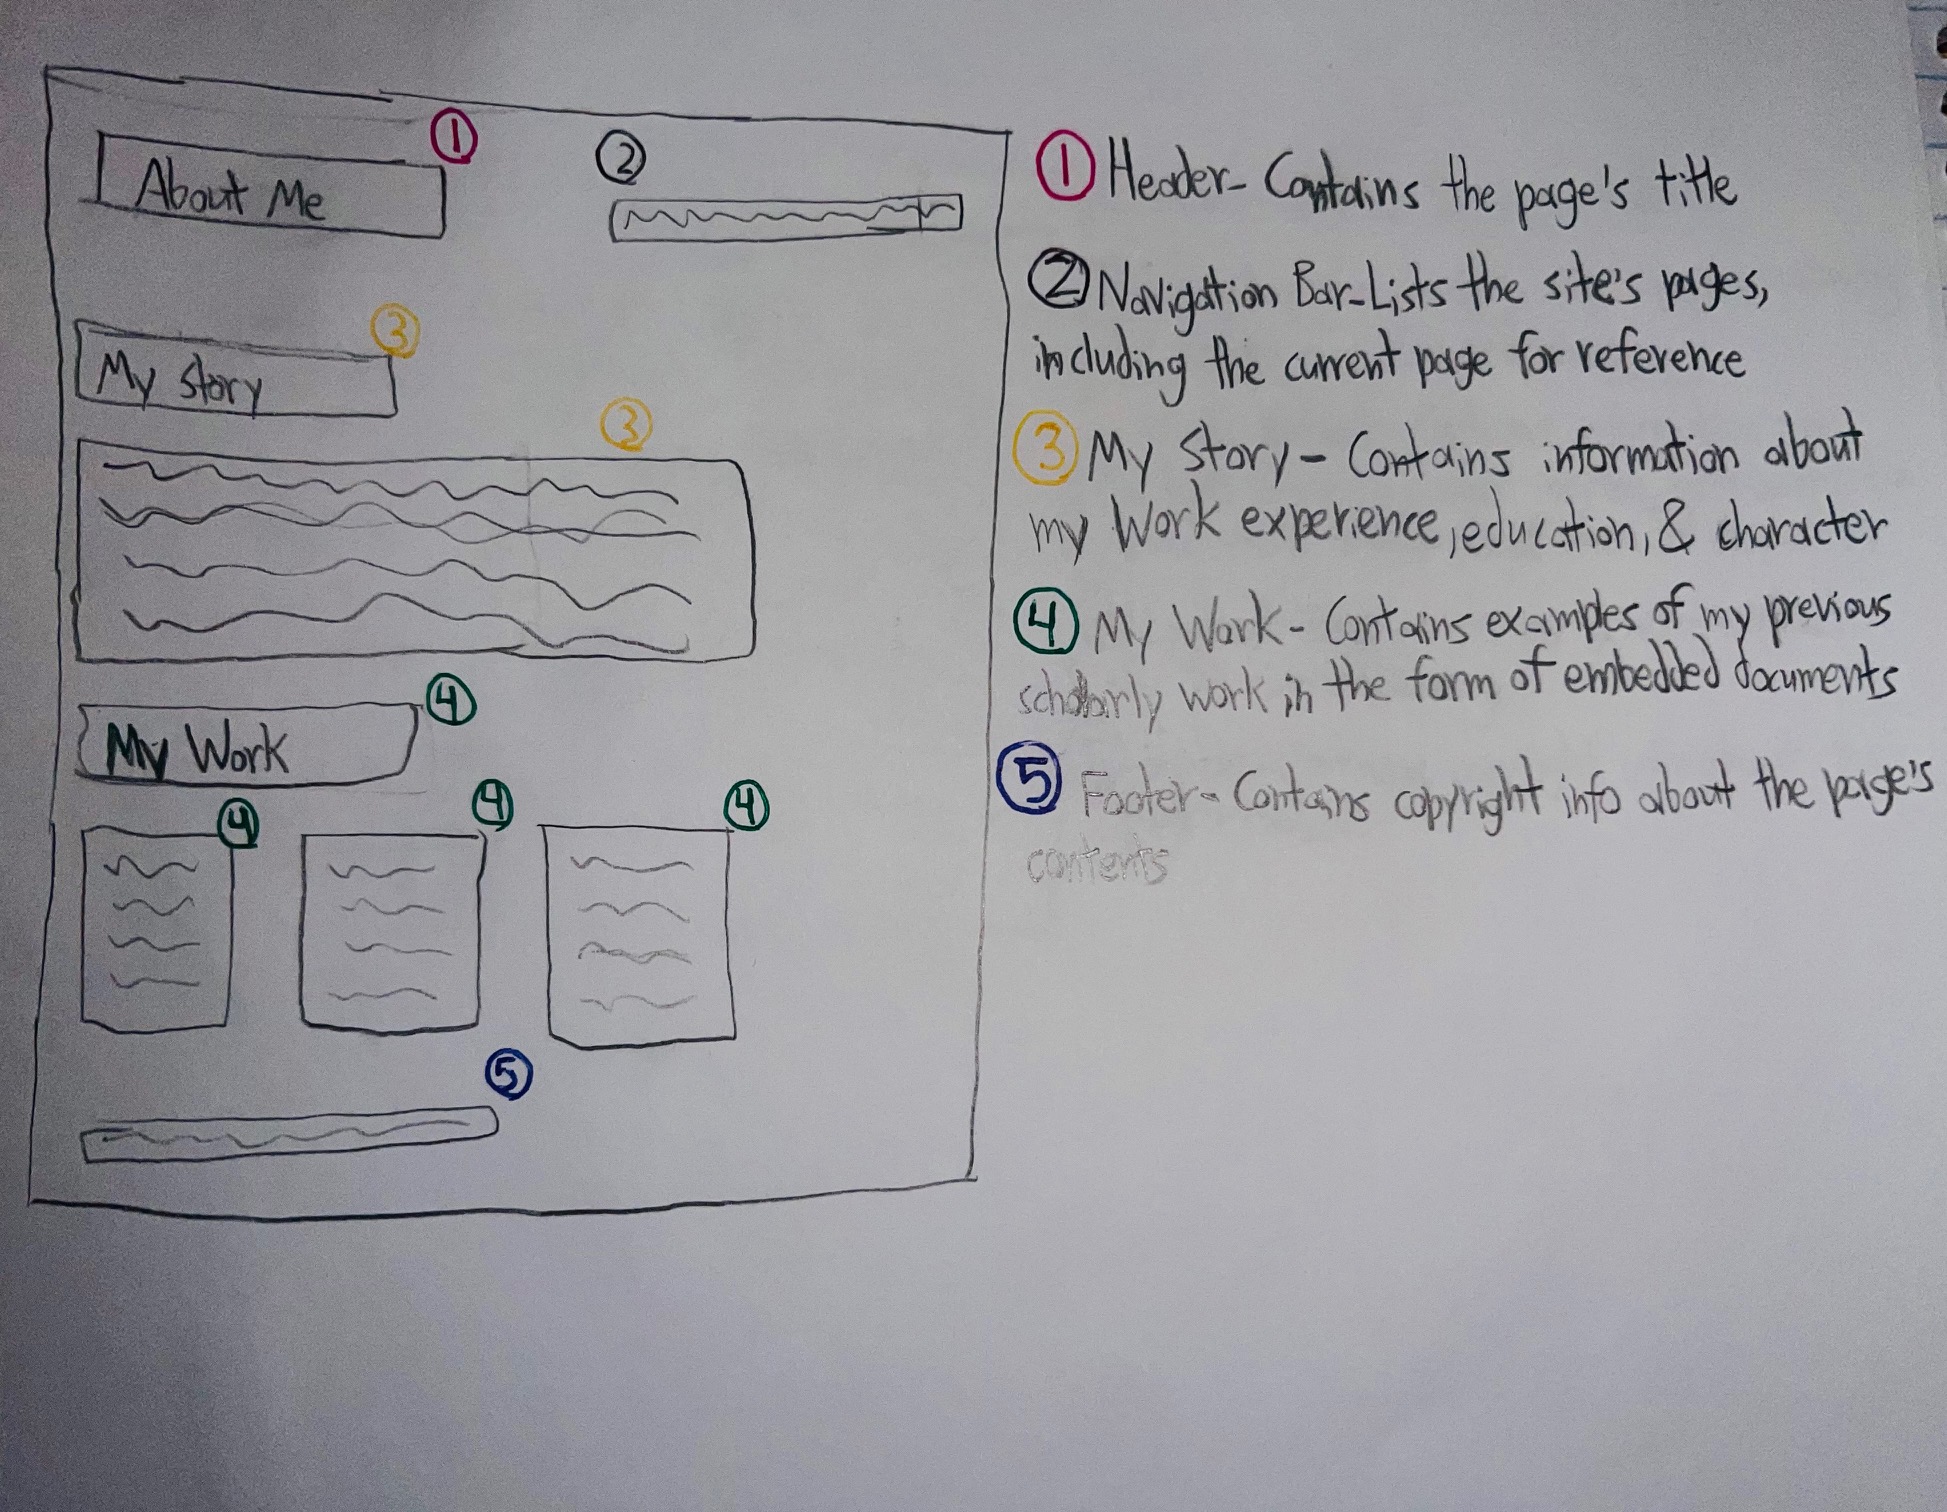 1
About Me
2
3
My Story
3
4
My Work
4
4
4
5
1 Header- Contains the page's title
2 Navigation Bar-Lists the site's pages,
including the current page for reference
3 My Story - Contains information about
my Work experience, education, & character
4 My Work - Contains examples of my previous
scholarly work in the form of embedded documents
5 Footer- Contains copyright info about the page's
contents